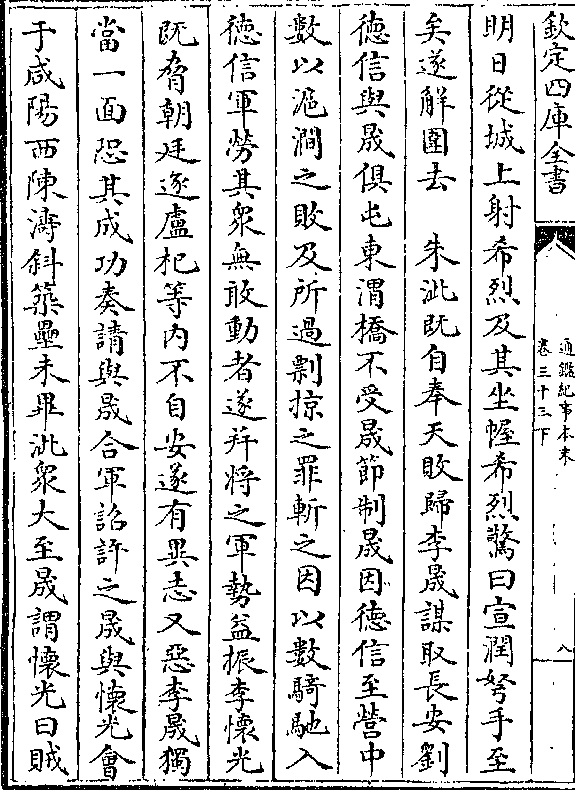 欽定四庫全書
通鑑紀事本末
卷三十三下
八
明日從城上射希烈及其坐幄希烈驚曰宣潤弩手至
矣遂解圍去　朱泚既自奉天敗歸李晟謀取長安劉
德信與晟俱屯東渭橋不受晟節制晟因德信至營中
數以滬澗之敗及所過剽掠之罪斬之因以數騎馳入
德信軍勞其衆無敢動者遂并將之軍勢益振李懷光
既脅朝廷逐盧杞等内不自安遂有異志又惡李晟獨
當一面恐其成功奏請與晟合軍詔許之晟與懷光會
于咸陽西陳濤斜築壘未畢泚衆大至晟謂懷光曰賊